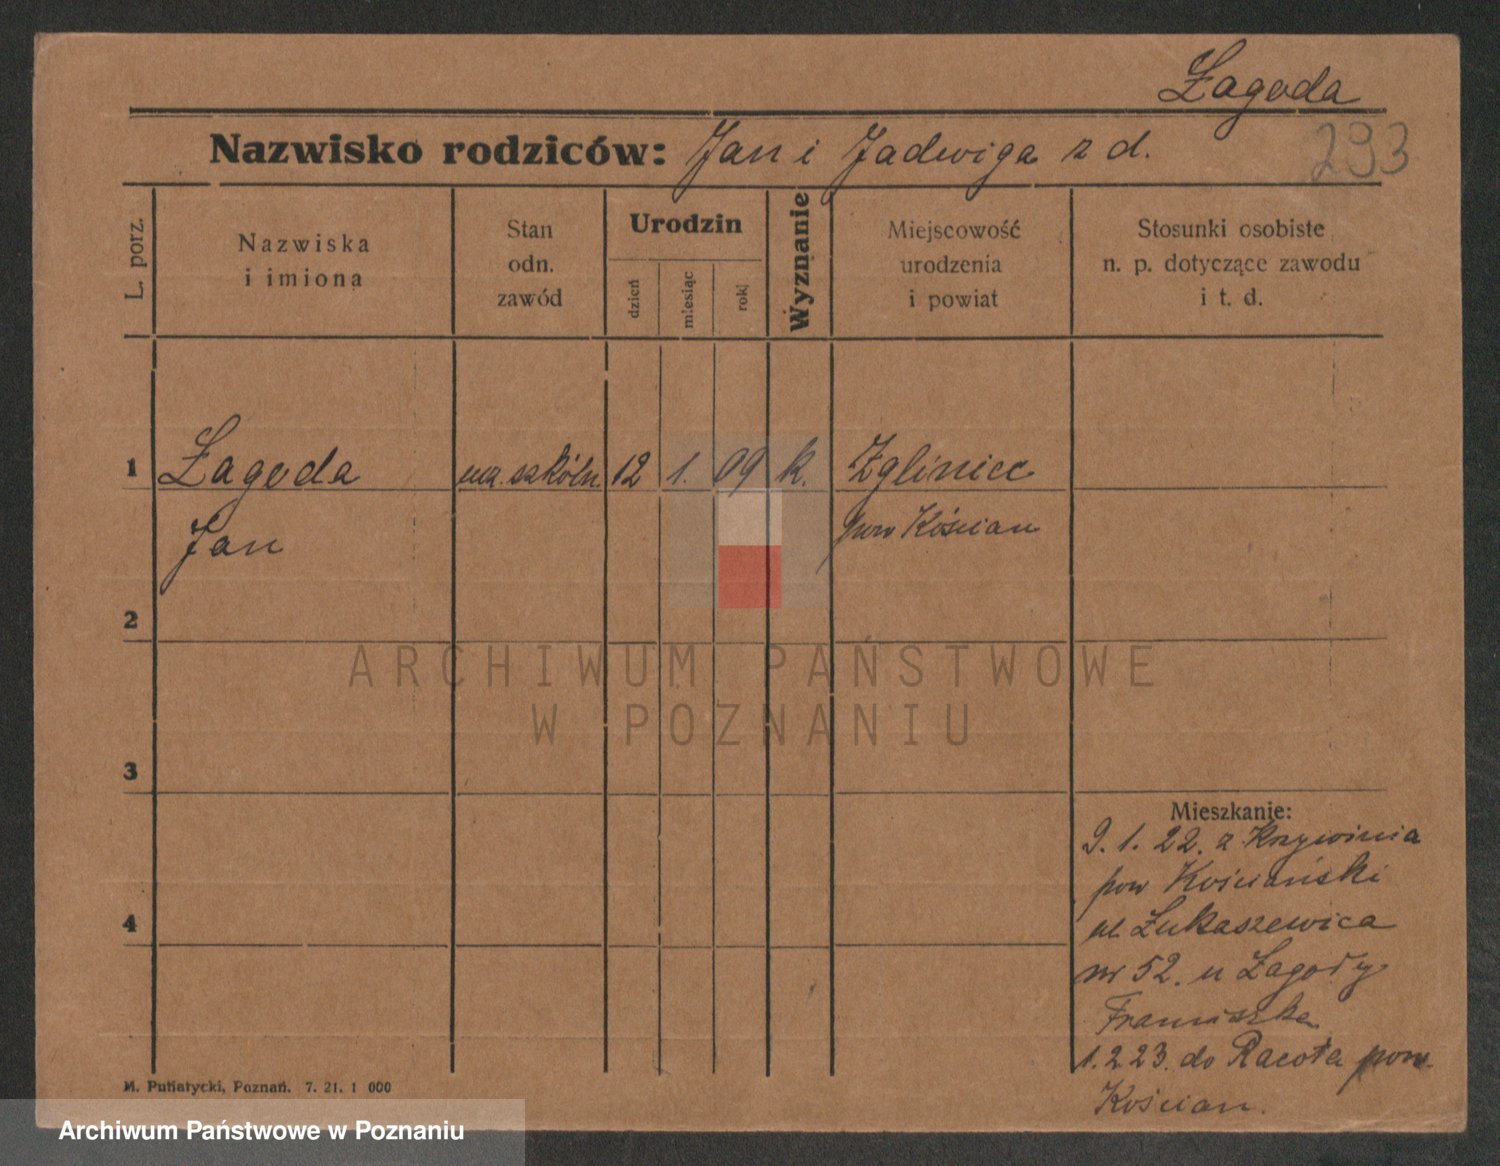 Łagoda
293
Nazwisko rodziców: Jan i Jadwiga z d.
L. porz.
Nazwiska
i imiona
Stan
odn.
zawód
Urodzin
dzień
miesiąc
rok
Wyznanie
Miejscowość
urodzenia
i powiat
Stosunki osobiste
n. p. dotyczące zawodu
i t. d.
1 Łagoda szkóln. 12 1. 09 k. Zgliniec
Jan pow Kościan
2
3
4
Mieszkanie:
9. 1. 22. z Krzywinia
pow Kościański
ul. Łukaszewica
nr 52. u Łagody
Franciszka
1.2.23. do Racota pow.
Kościan.
M. Putiatycki, Poznań. 7. 21. 1 000
ARCHIWUM PAŃSTWOWE
W POZNANIU
Archiwum Państwowe w Poznaniu